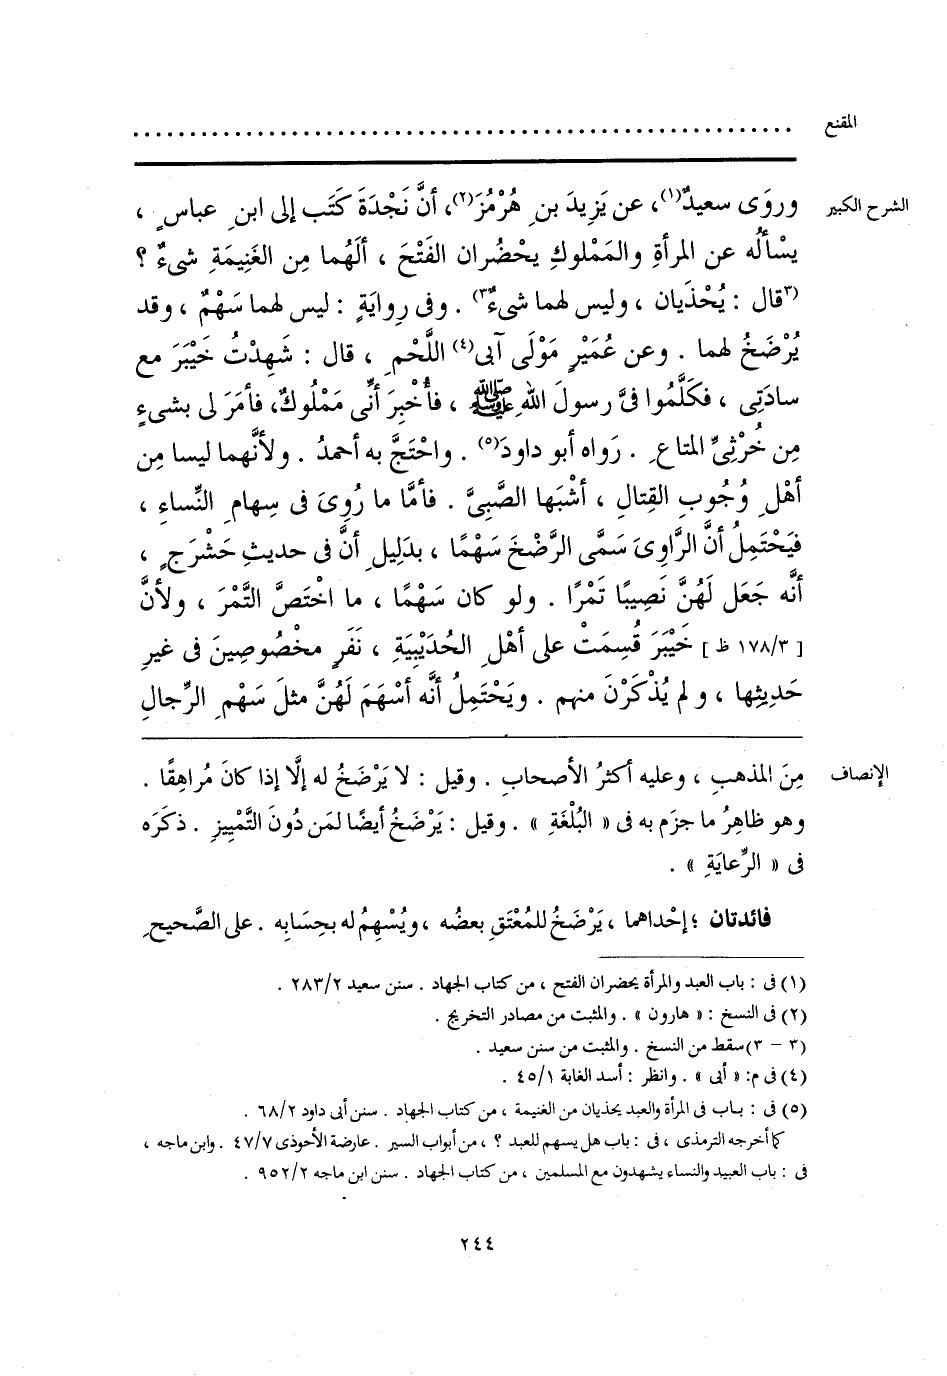 المقنع ............................................................
الشرح الكبير ورَوَى سعيدٌ(١)، عن يَزِيدَ بنِ هُرْمُزَ(٢)، أنَّ نَجْدَةَ كَتَب إلى ابنِ عباسٍ ،
يسْألُه عن المرأةِ والمَمْلوكِ يحْضُران الفَتْحَ ، ألَهُما مِن الغَنِيمَةِ شىءٌ ؟
(٣قال : يُحْذَيان ، وليس لهما شىءٌ٣) . وفى رِوايَةٍ : ليس لهما سَهْمٌ ، وقد
يُرْضَخُ لهما . وعن عُمَيْرٍ مَوْلَى آبى(٤) اللَّحْمِ ، قال : شَهِدْتُ خَيْبَرَ مع
سادَتِى ، فكَلَّمُوا فىَّ رسولَ الله ﷺ ، فأُخْبِرَ أنِّى مَمْلُوكٌ، فأمَرَ لى بشىءٍ
مِن خُرْثِىِّ المتاعِ . رَواه أبو داودَ(٥) . واحْتَجَّ به أحمدُ . ولأنَّهما ليسا مِن
أهْلِ وُجُوبِ القِتالِ ، أشْبَها الصَّبِىَّ . فأمَّا ما رُوِىَ فى سِهامِ النِّساءِ ،
فيَحْتَمِلُ أنَّ الرَّاوِىَ سَمَّى الرَّضْخَ سَهْمًا ، بدَلِيلِ أنَّ فى حديثِ حَشْرَجٍ ،
أنَّه جَعَل لَهُنَّ نَصِيبًا تَمْرًا . ولو كان سَهْمًا ، ما اخْتَصَّ التَّمْرَ ، ولأنَّ
[ ١٧٨/٣ ظ ] خَيْبَرَ قُسِمَتْ على أهْلِ الحُدَيْبِيَةِ ، نَفَرٍ مخْصُوصِينَ فى غيرِ
حَدِيثِها ، و لم يُذْكَرْنَ منهم . ويَحْتَمِلُ أنَّه أسْهَمَ لَهُنَّ مثلَ سَهْمِ الرِّجالِ
الإنصاف مِنَ المذهبِ ، وعليه أكثرُ الأصحابِ . وقيل : لا يَرْضَخُ له إلَّا إذا كانَ مُراهِقًا .
وهو ظاهِرُ ما جزَم به فى « البُلْغَةِ » . وقيل : يَرْضَخُ أيضًا لمَن دُونَ التَّمْييزِ . ذكَرَه
فى « الرِّعايَةِ » .
فائدتان ؛ إحْداهما ، يَرْضَخُ للمُعْتَقِ بعضُه ، ويُسْهِمُ له بحِسَابِه . على الصَّحيحِ
(١) فى : باب العبد والمرأة يحضران الفتح ، من كتاب الجهاد . سنن سعيد ٢٨٣/٢ .
(٢) فى النسخ : « هارون » . والمثبت من مصادر التخريج .
(٣ - ٣) سقط من النسخ . والمثبت من سنن سعيد .
(٤) فى م: « أبى » . وانظر : أسد الغابة ٤٥/١ .
(٥) فى : باب فى المرأة والعبد يحذيان من الغنيمة ، من كتاب الجهاد . سنن أبى داود ٦٨/٢ .
كما أخرجه الترمذى ، فى : باب هل يسهم للعبد ؟ ، من أبواب السير . عارضة الأحوذى ٤٧/٧ . وابن ماجه ،
فى : باب العبيد والنساء يشهدون مع المسلمين ، من كتاب الجهاد . سنن ابن ماجه ٩٥٢/٢ .
٢٤٤